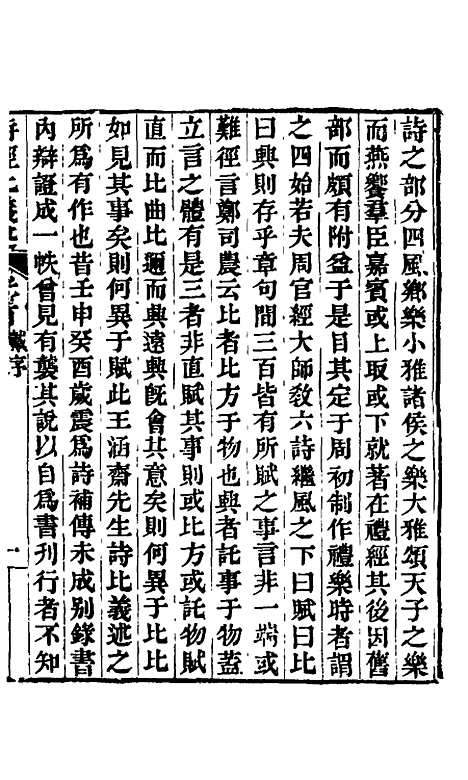 詩之部分四風鄉樂小雅諸侯之樂大雅頌天子之樂
而燕饗羣臣嘉賓或上取或下就著在禮經其後因舊
部而頗有附益于是目其定于周初制作禮樂時者謂
之四始若夫周官經大師敎六詩繼風之下曰賦曰比
曰興則存乎章句間三百皆有所賦之事言非一端或
難徑言鄭司農云比者比方于物也興者託事于物蓋
立言之體有是三者非直賦其事則或比方或託物賦
直而比曲比邇而興遠興旣會其意矣則何異于比比
如見其事矣則何異于賦此王涵齋先生詩比義述之
所爲有作也昔壬申癸酉歲震爲詩補傳未成别錄書
內辯證成一帙曾見有襲其說以自爲書刊行者不知
詩經比義述
戴序
一